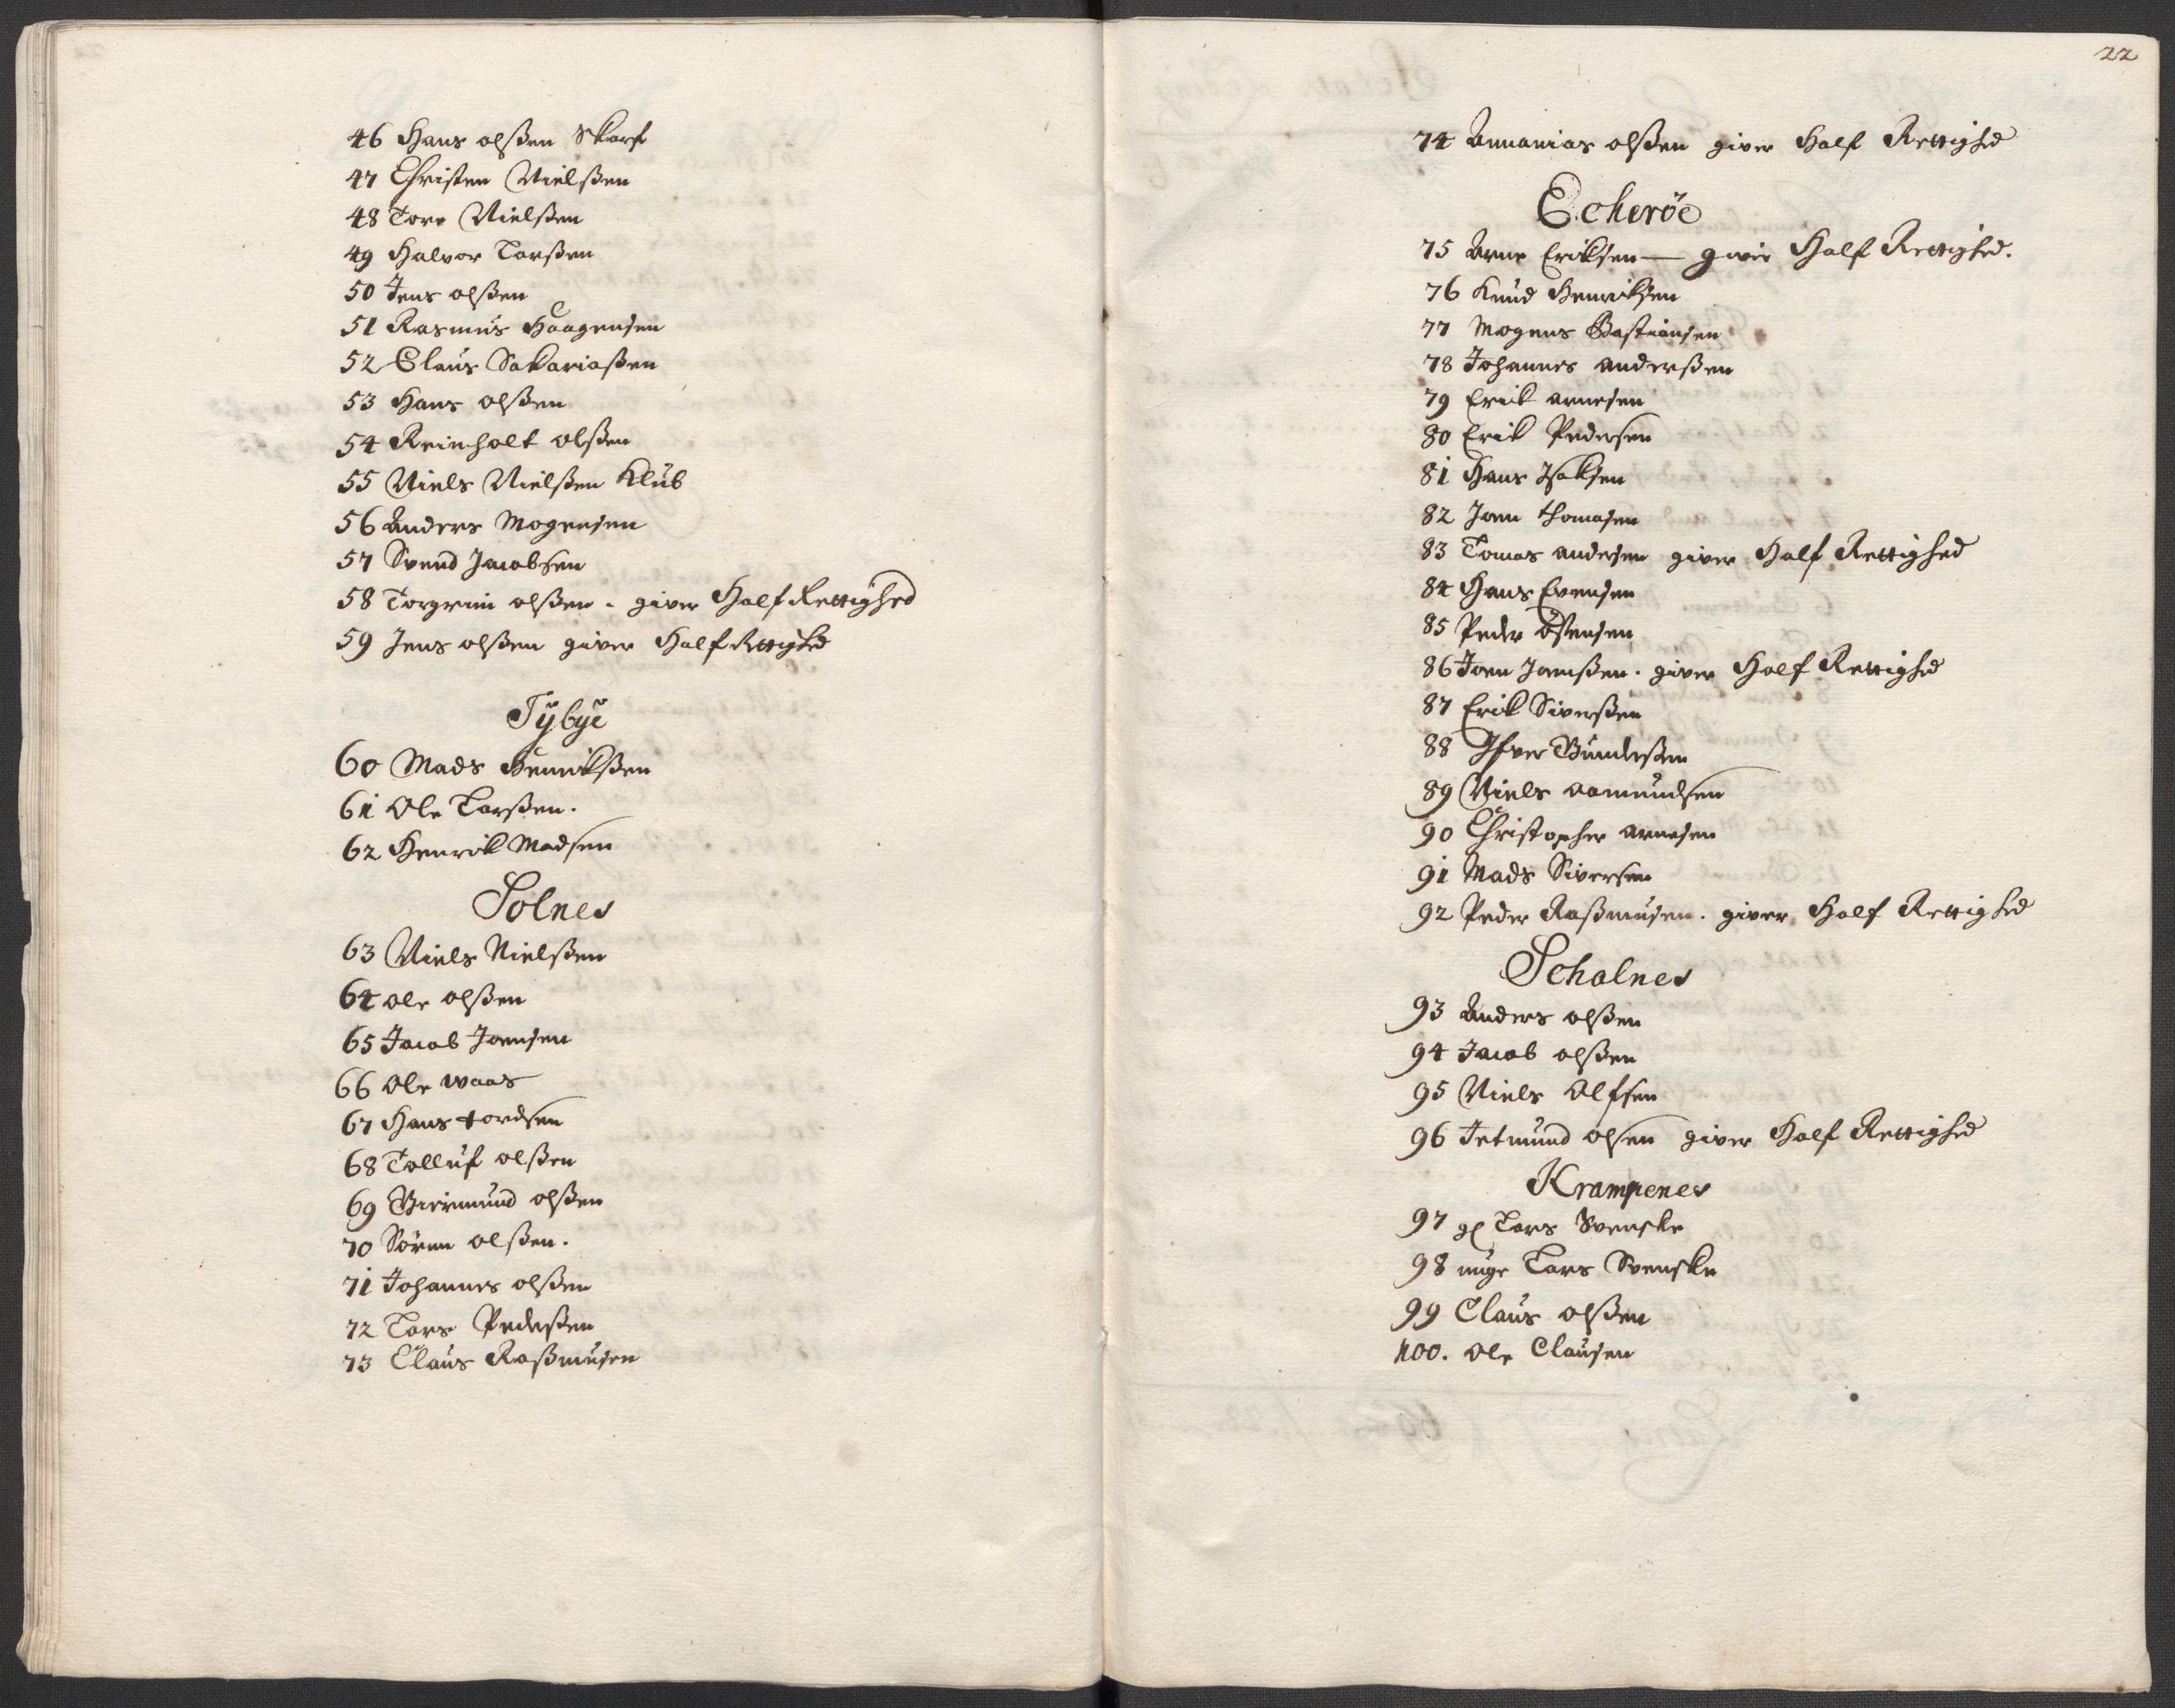 46 Hans olßen Skarf
47 Christen Nielßen
48 Tore Nielßen
49 Halvor Larßen
50 Jens olßen
51 Rasmus Haagensen
52 Claus Sakariaßen
53 Hans olßen
54 Reinholt olßen
55 Niels Nielßen Klub
56 Anders Mogensen
57 Svend Jacobsen
58 Torgrim olßen. giver Half Rettighed
59 Jens olßen giver Half Rettighed
Tÿbÿe
60 Mads Henrikßen
61 Ole Larßen.
62 Henrik Madsen
Solnes
63 Niels Nielßen
64 ole olßen
65 Jacob Joensen
66 Ole waas
67 Hans tordsen
68 Tolluf olßen
69 Giermund olßen
70 Søren olßen.
71 Johannes olßen
72 Lars Pederßen
73 Claus Raßmusen
22
74 Annanias olßen giver Half Rettighed
Echeröe
75 Arne Eriksen — giver Half Rettighed.
76 Knud Henrikßen
77 Mogens Bastiansen
78 Johannes anderßen
79 Erik arnesen
80 Erik Pedersen
81 Hans Isaksen
82 Joen thomasen
83 Tomas andersen giver Half Rettighed
84 Hans Evensen
85 Peder østensen
86 Joen Joenßen. giver Half Rettighed
87 Erik Siverßen
88 Ifver Gunderßen
89 Niels aamundsen
90 Christopher arnesen
91 Mads Siversen
92 Peder Raßmusen. giver Half Rettighed
Scholnes
93 Anders olßen
94 Jacob olßen
95 Niels Olfsen
96 Jetmund olsen giver Half Rettighed
Krampenes
97 gl Lars Svenske
98 unge Lars Svenske
99 Claus olßen
100. Ole Clausen